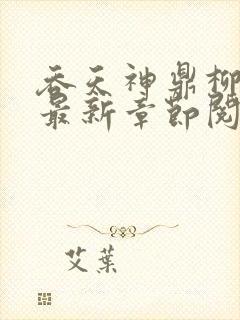 吞天神鼎柳
最新章节阅
艾葉